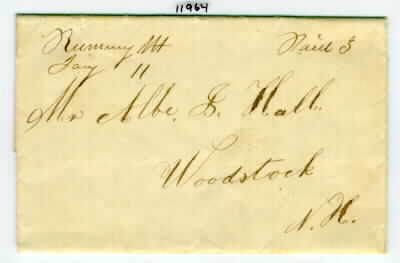 11964
Rumney NH Paid 3
Jany 11
Mr Albe. S. Hall.
Woodstock
N. H.